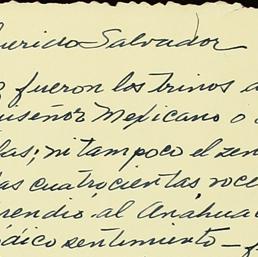 uerido Salvador
fueron los trinos a
useñor Mexicano o
las; ni tampoco el zen
las cuatrocientas voce
rendio al Anahua
dico sentimiento - f